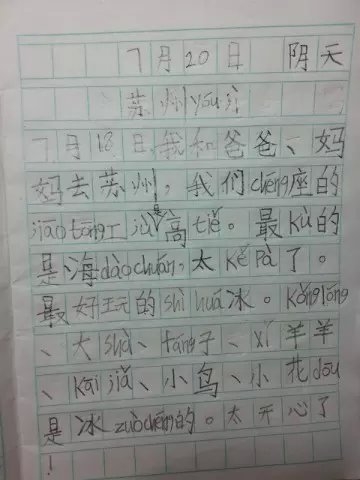 7月20日 阴天
苏州yóu jì
7月18日,我和爸爸、妈
妈去苏州,我们chéng座的
jiāo tōng工jù是高tiě。最kù的
是海dào chuán,太kě pà了。
最好玩的shì huá冰。kǒng lóng
、大shà、fáng子、xǐ羊羊
、kǎi jiǎ、小鸟、小花dōu
是冰zuò chéng的。太开心了
!